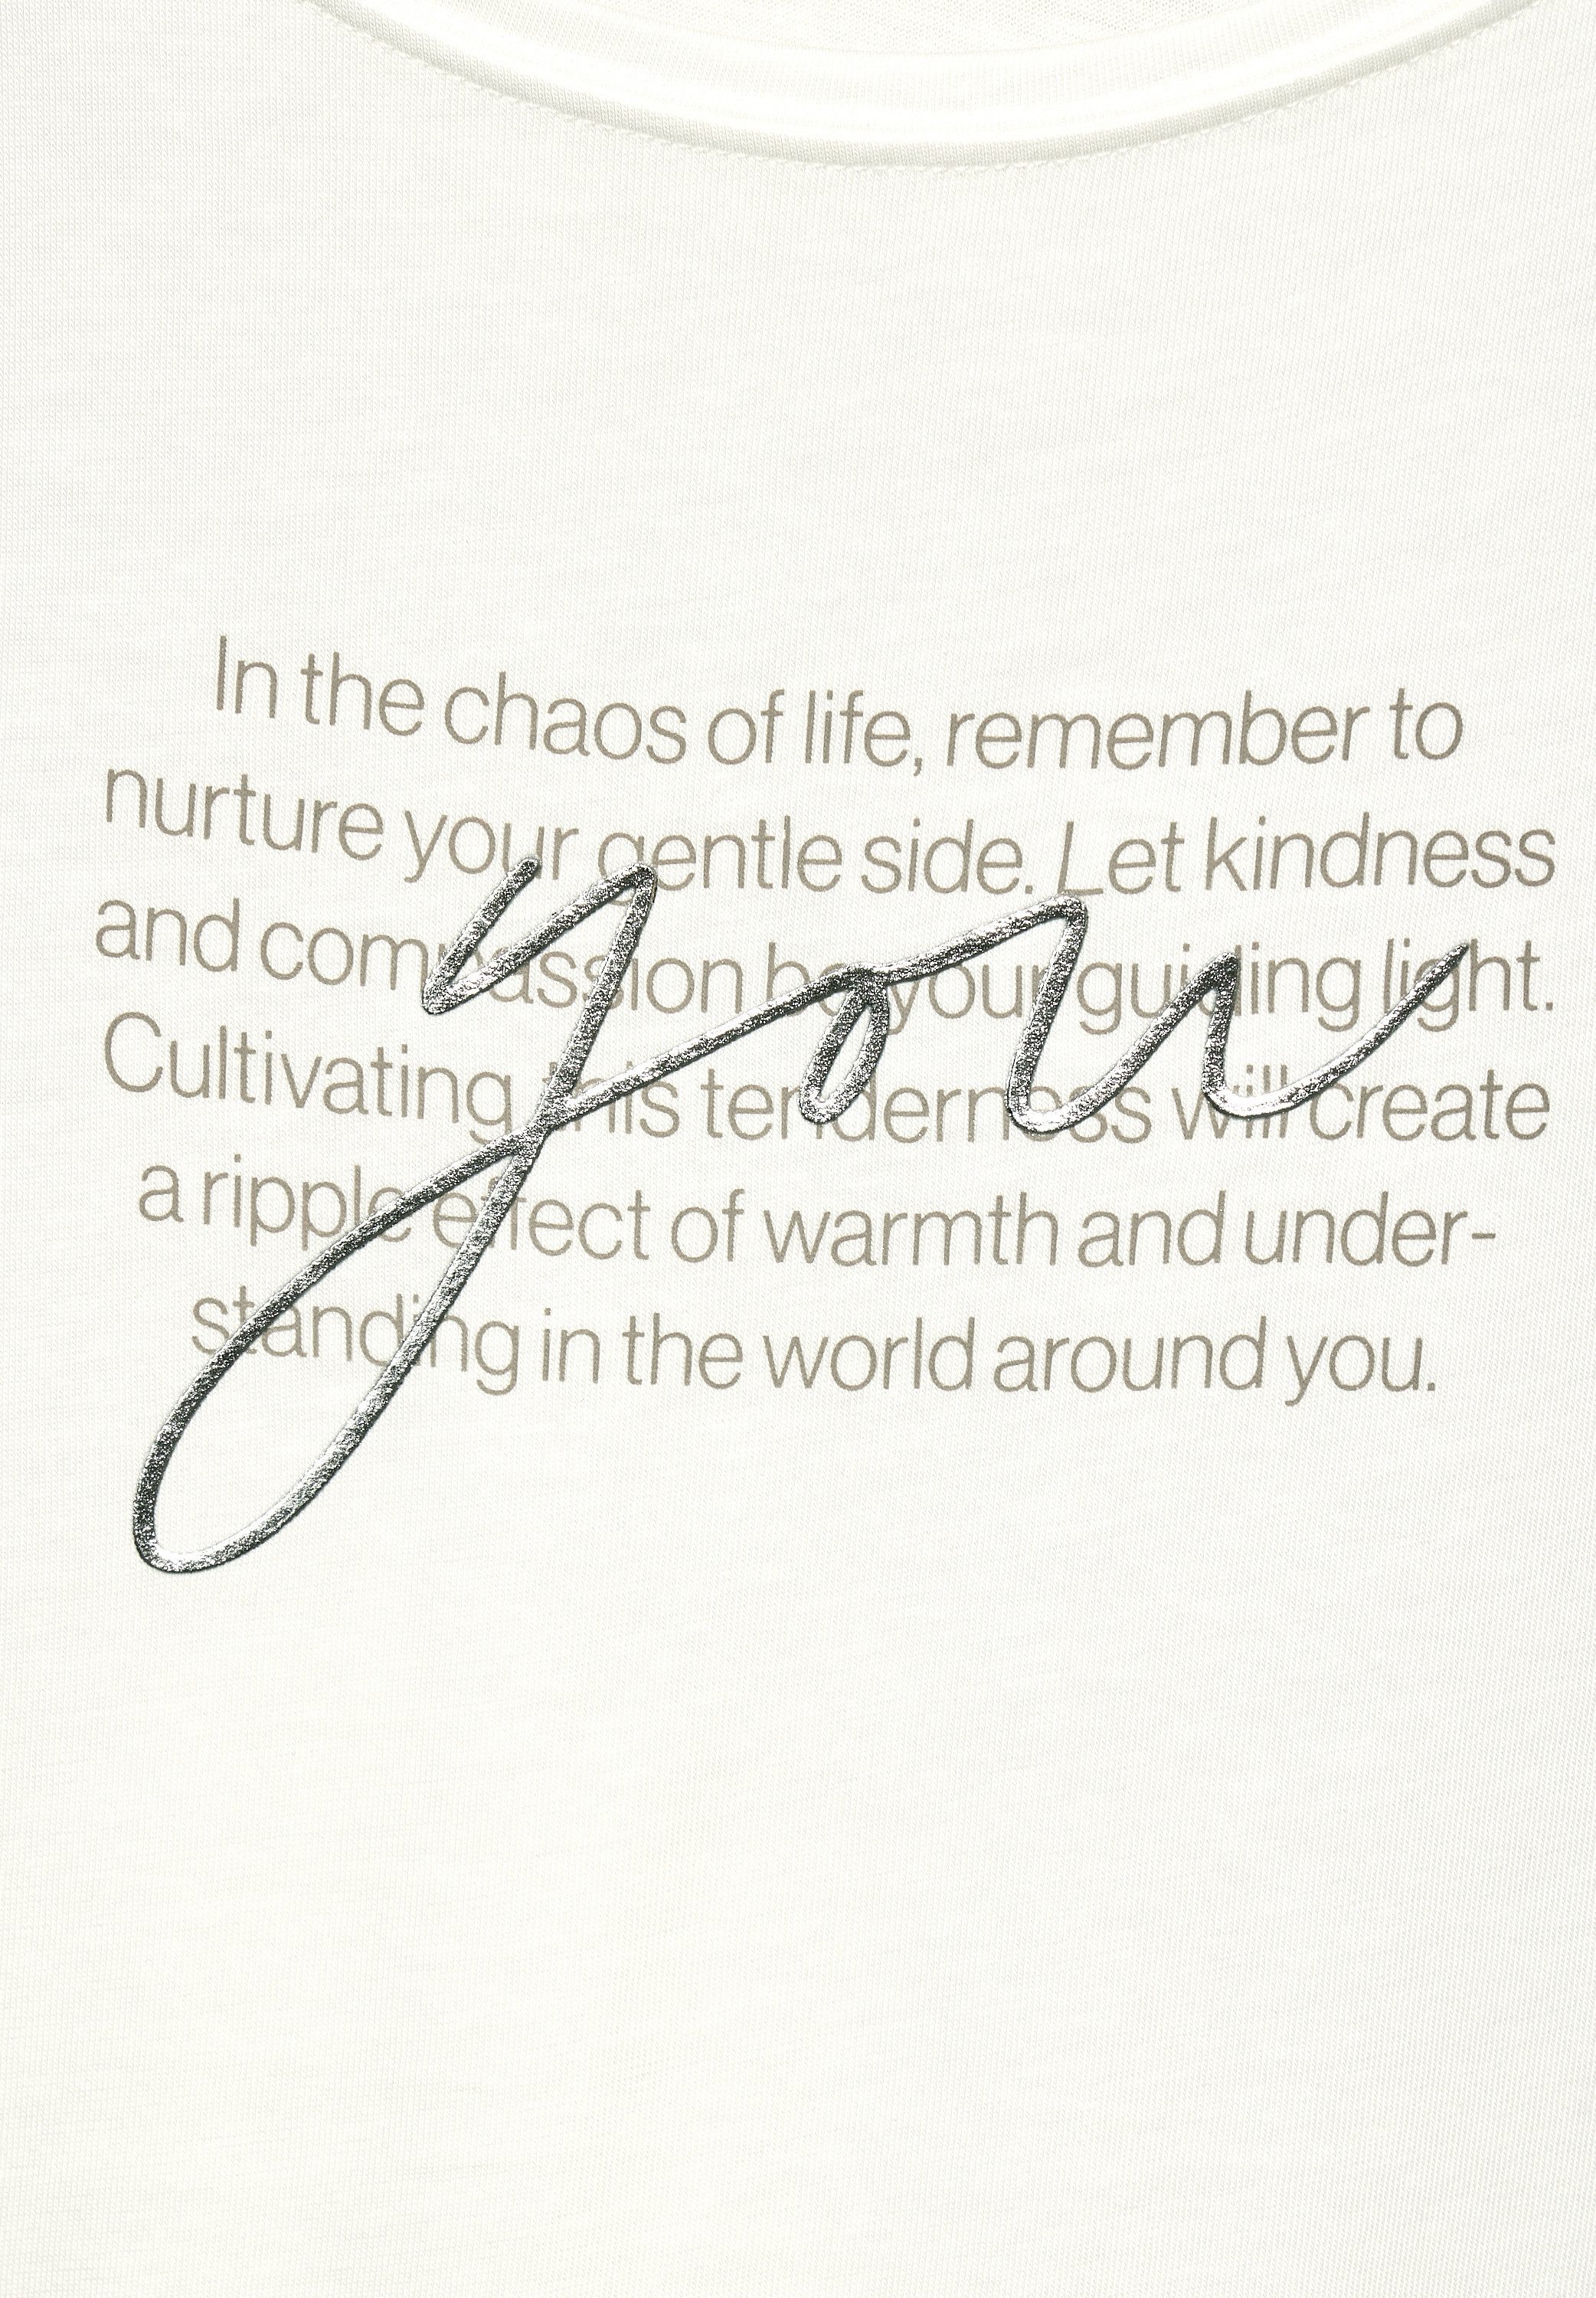 In the chaos of life, remember to
nurture your gentle side. Let kindness
and compassion be your guiding light.
Cultivating this tenderness will create
a ripple effect of warmth and under-
standing in the world around you.
you